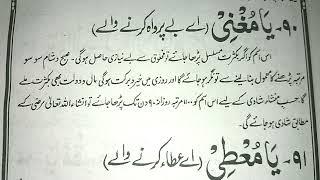 ۹۰۔ یَا مُغْنِیُ (اے بے پرواہ کرنے والے)
اس اسم کو اگر بکثرت مسلسل پڑھا جائے تو مخلوق سے بے نیازی حاصل ہوگی۔ صبح و شام سو سو
مرتبہ پڑھنے کا معمول بنا لینے سے تونگر ہو جائے گا اور روزی میں خیر و برکت ہوگی مال و دولت بھی بکثرت ملے
گا۔ حسب منشاء شادی کے لیے اس اسم کو ۱۱۰۰ مرتبہ روزانہ ۹۰ دن تک پڑھا جائے تو انشاء اللہ تعالیٰ مرضی کے
مطابق شادی ہو جائے گی۔
۹۱۔ یَا مُعْطِیُ (اے عطاء کرنے والے)